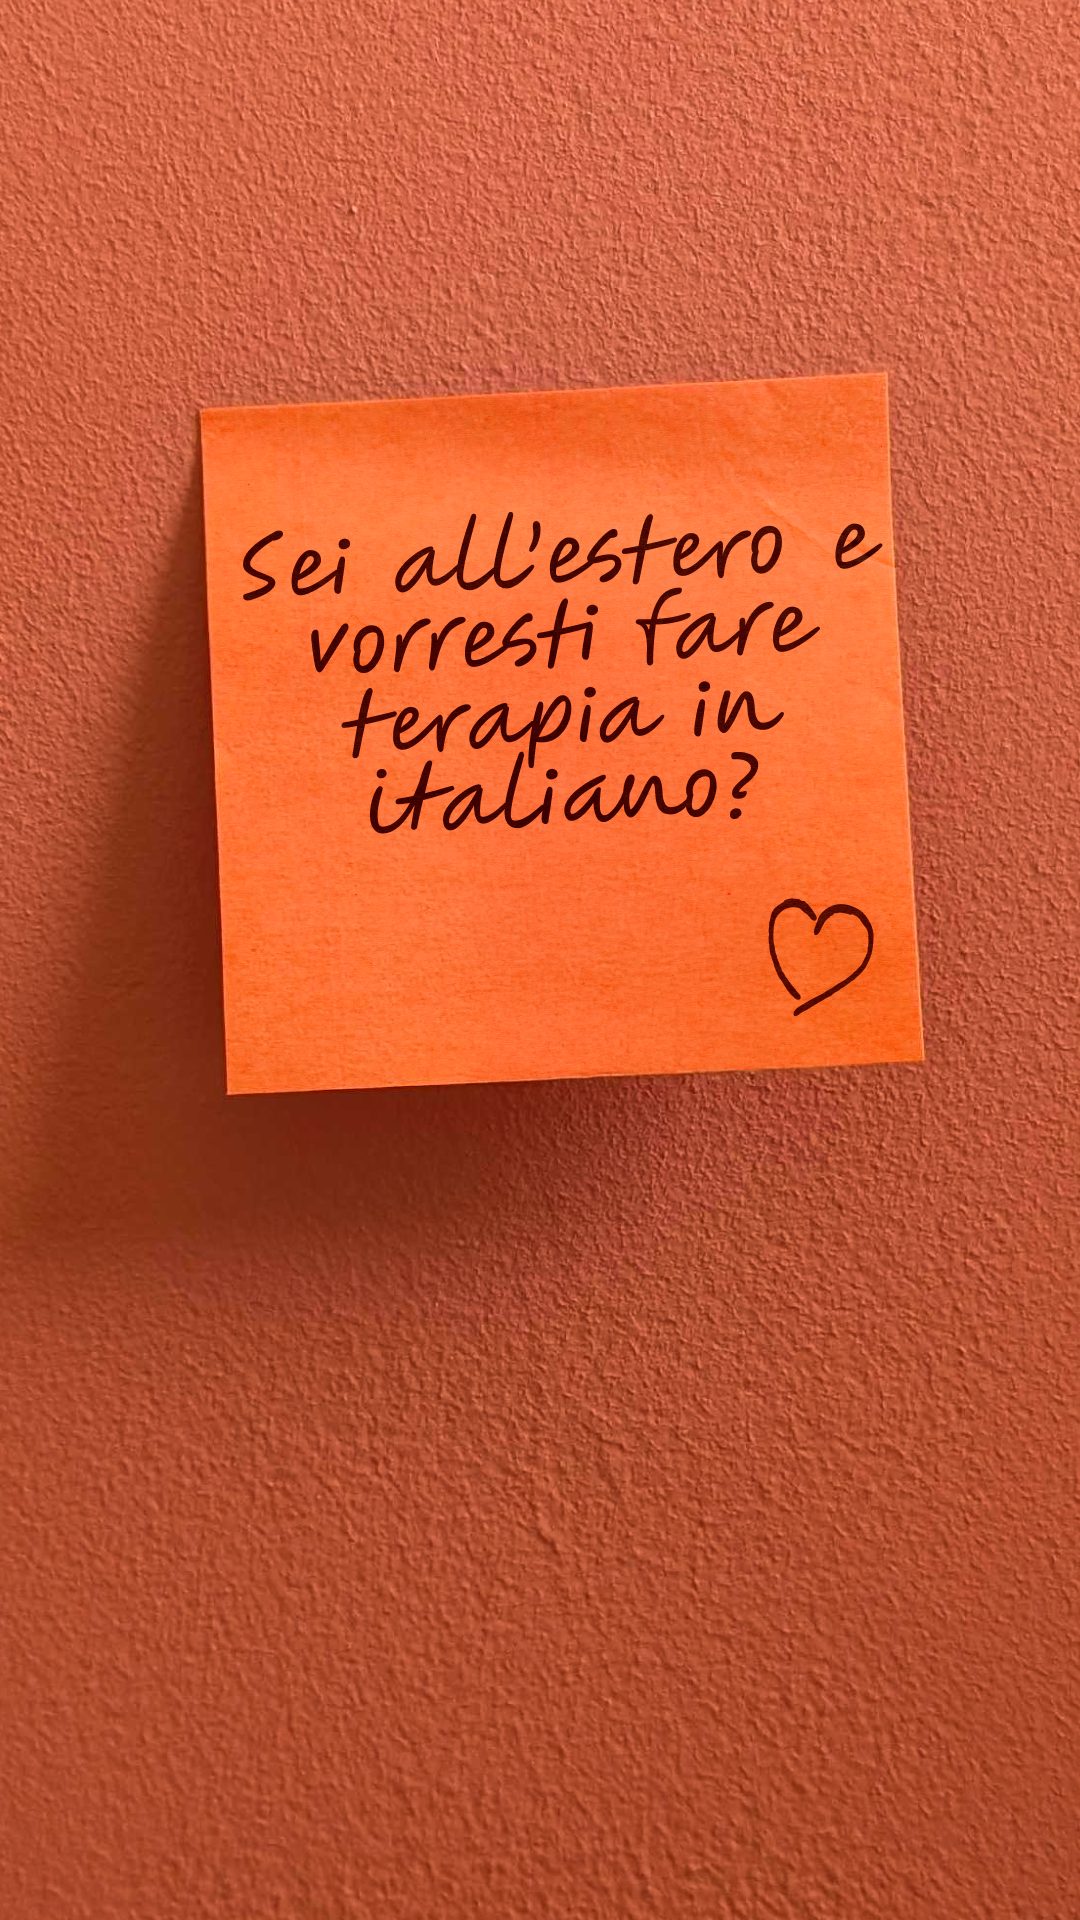 Sei all'estero e
vorresti fare
terapia in
italiano?